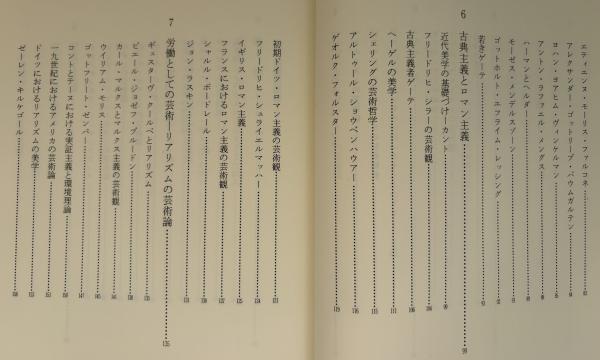 エティエンヌ・モーリス・ファルコネ
アレクサンダー・ゴットリープ・バウムガルテン
ヨハン・ヨアヒム・ヴィンケルマン
アントン・ラファエル・メングス
ハーマンとヘルダー
モーゼス・メンデルスゾーン
ゴットホルト・エフライム・レッシング
若きゲーテ
6 古典主義とロマン主義
近代美学の基礎づけ―カント
フリードリヒ・シラーの芸術観
古典主義者ゲーテ
ヘーゲルの美学
シェリングの芸術哲学
アルトゥール・ショウペンハウアー
ゲオルク・フォルスター
初期ドイツ・ロマン主義の芸術観
フリードリヒ・シュライエルマッハー
イギリス・ロマン主義
フランスにおけるロマン主義の芸術観
シャルル・ボードレール
ジョン・ラスキン
7 労働としての芸術―リアリズムの芸術論
ギュスターヴ・クールベとリアリズム
ピエール・ジョゼフ・プルードン
カール・マルクスとマルクス主義の芸術観
ウィリアム・モリス
ゴットフリート・ゼンパー
コントとテーヌにおける実証主義と環境理論
一九世紀におけるアメリカの芸術論
ドイツにおけるリアリズムの美学
ゼーレン・キルケゴール